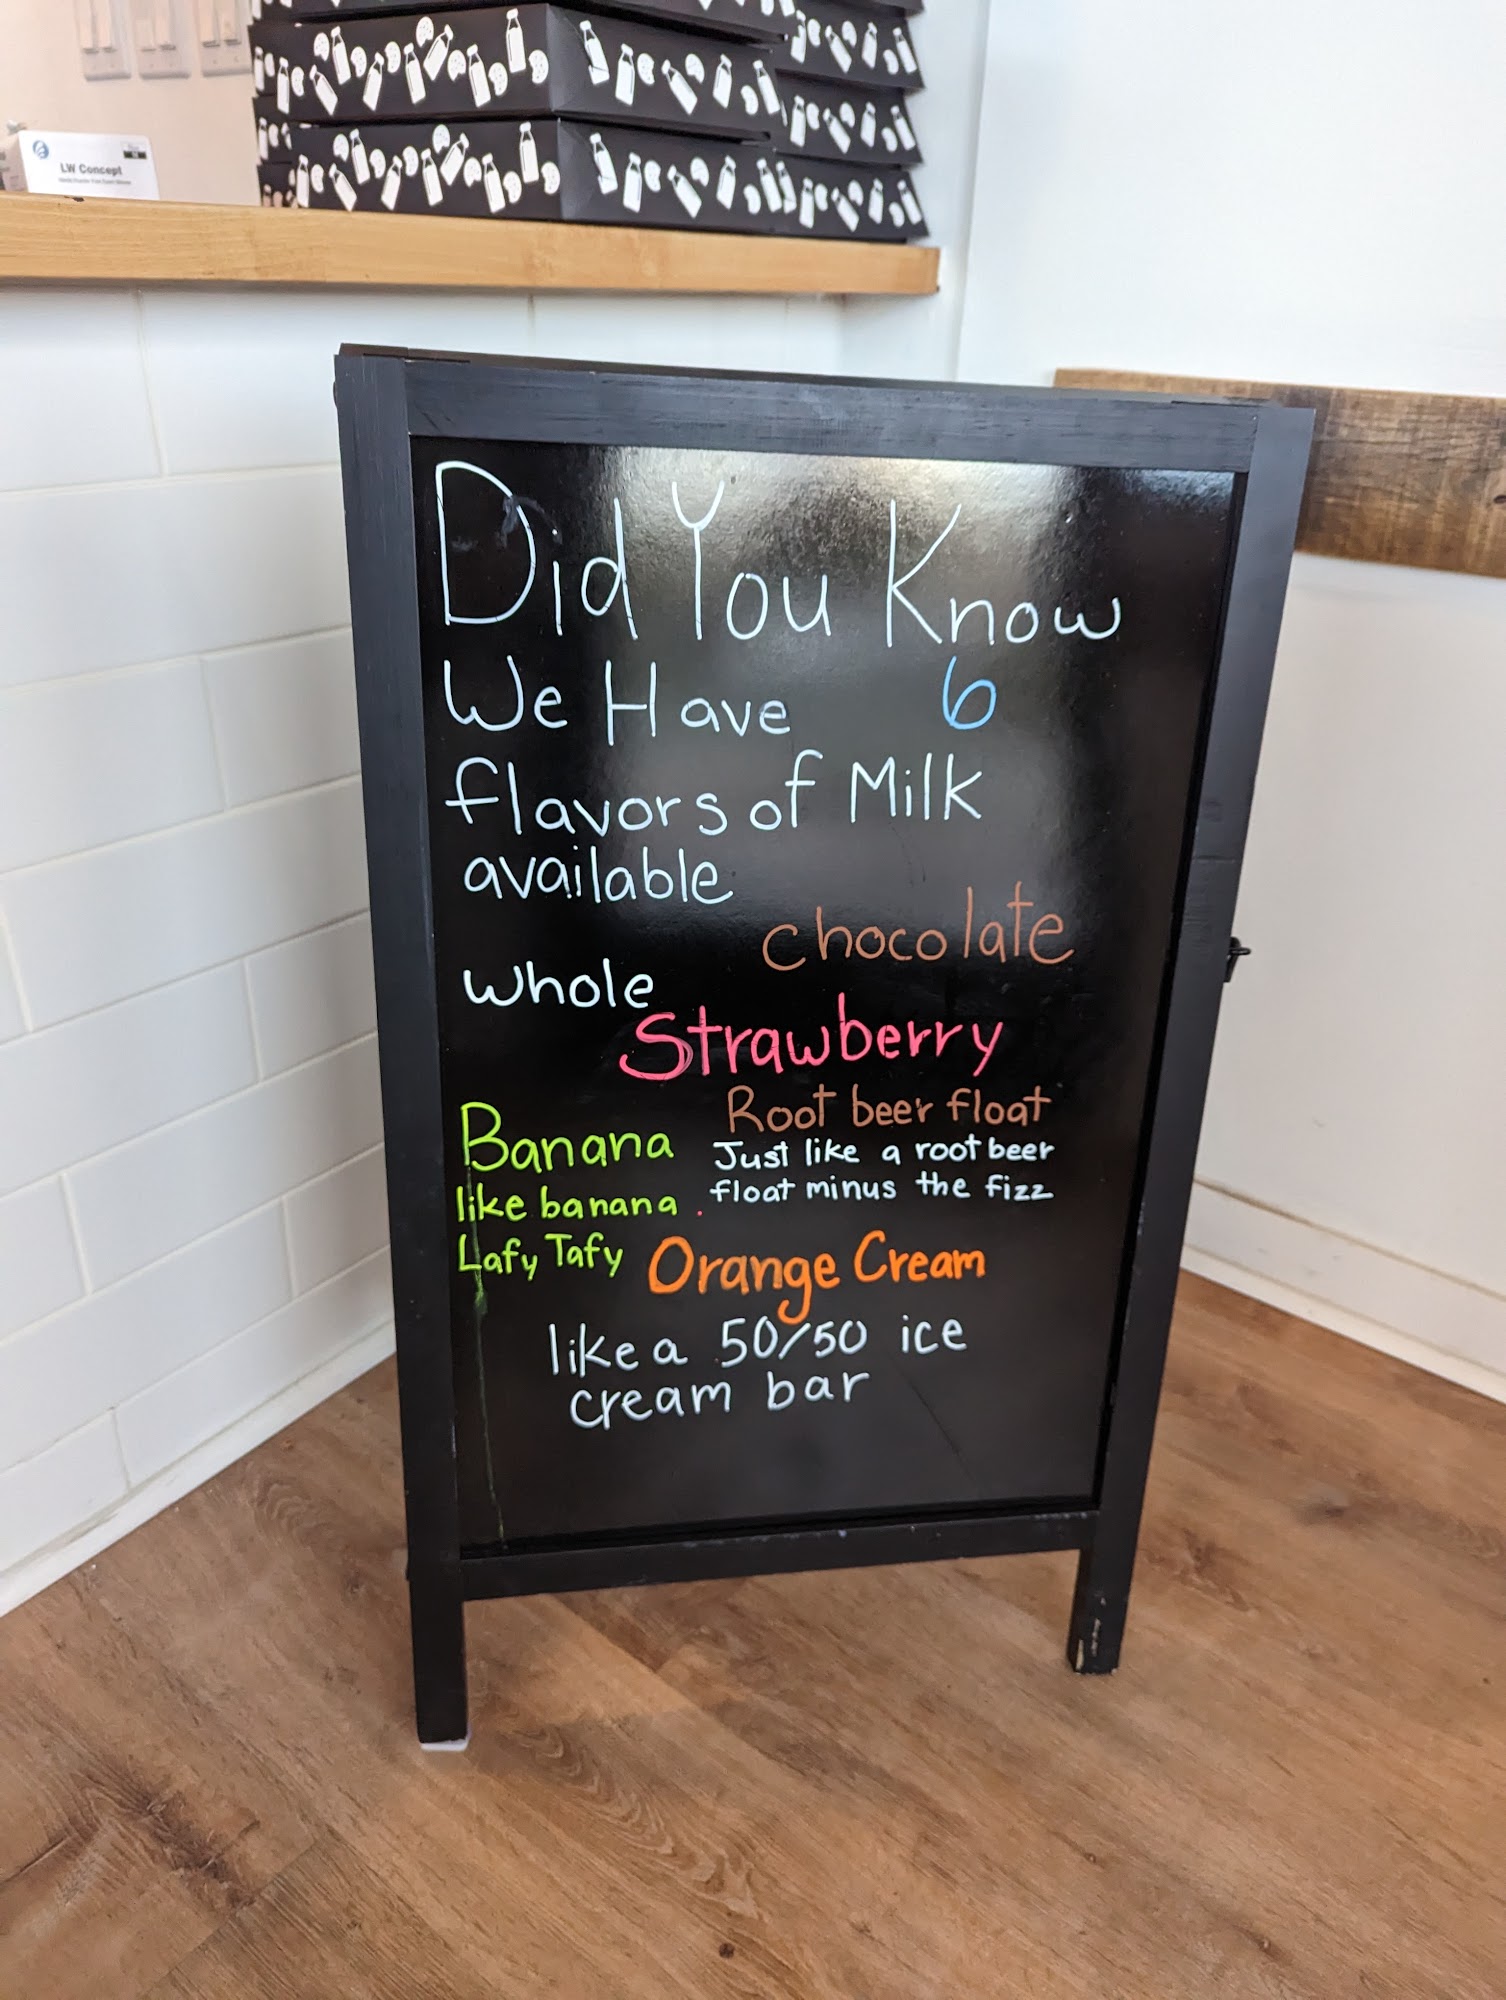 LW Concept
Did You Know
We Have 6
flavors of Milk
available
chocolate
whole
Strawberry
Root beer float
Just like a root beer
float minus the fizz
Banana
like banana
Lafy Tafy
Orange Cream
like a 50/50 ice
cream bar